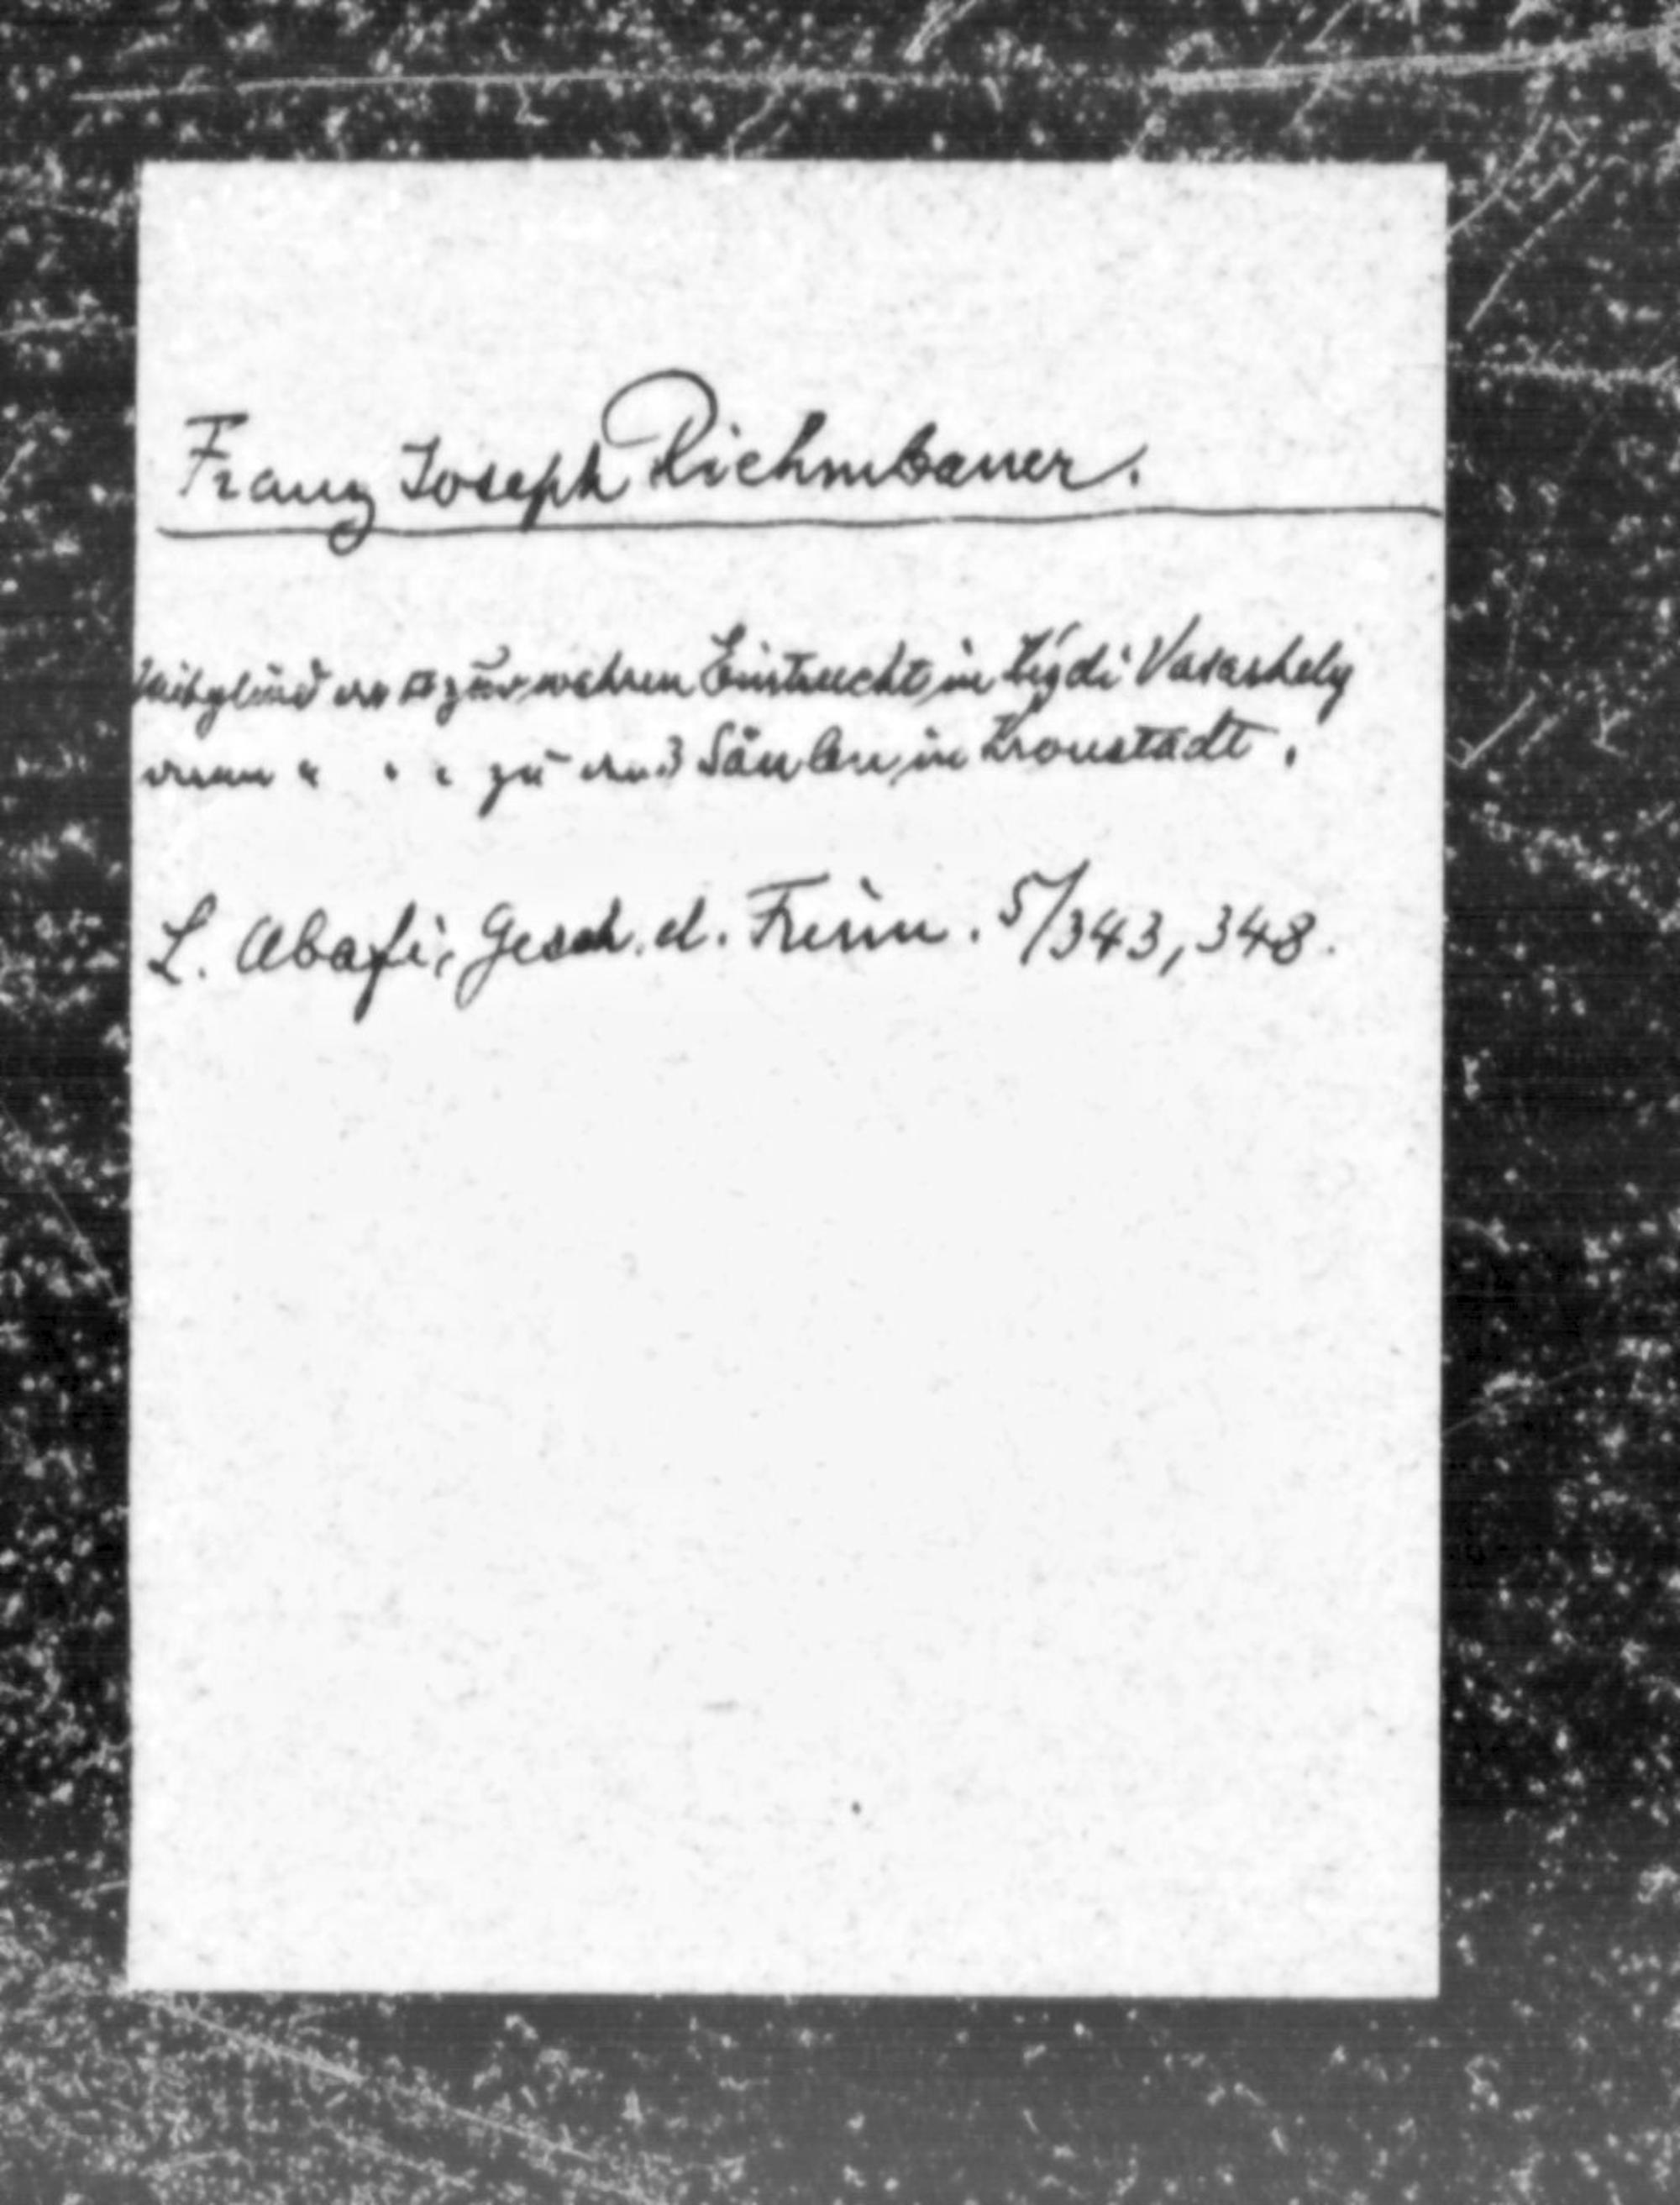 Franz Joseph Riehmbauer.
Mitglied der □ zur wahren Eintracht in Kézdi Vasarhely
dann " " " zu den 3 Säulen in Kronstadt.
L. Abafi, Gesch. d. Freim. 5/343, 348.